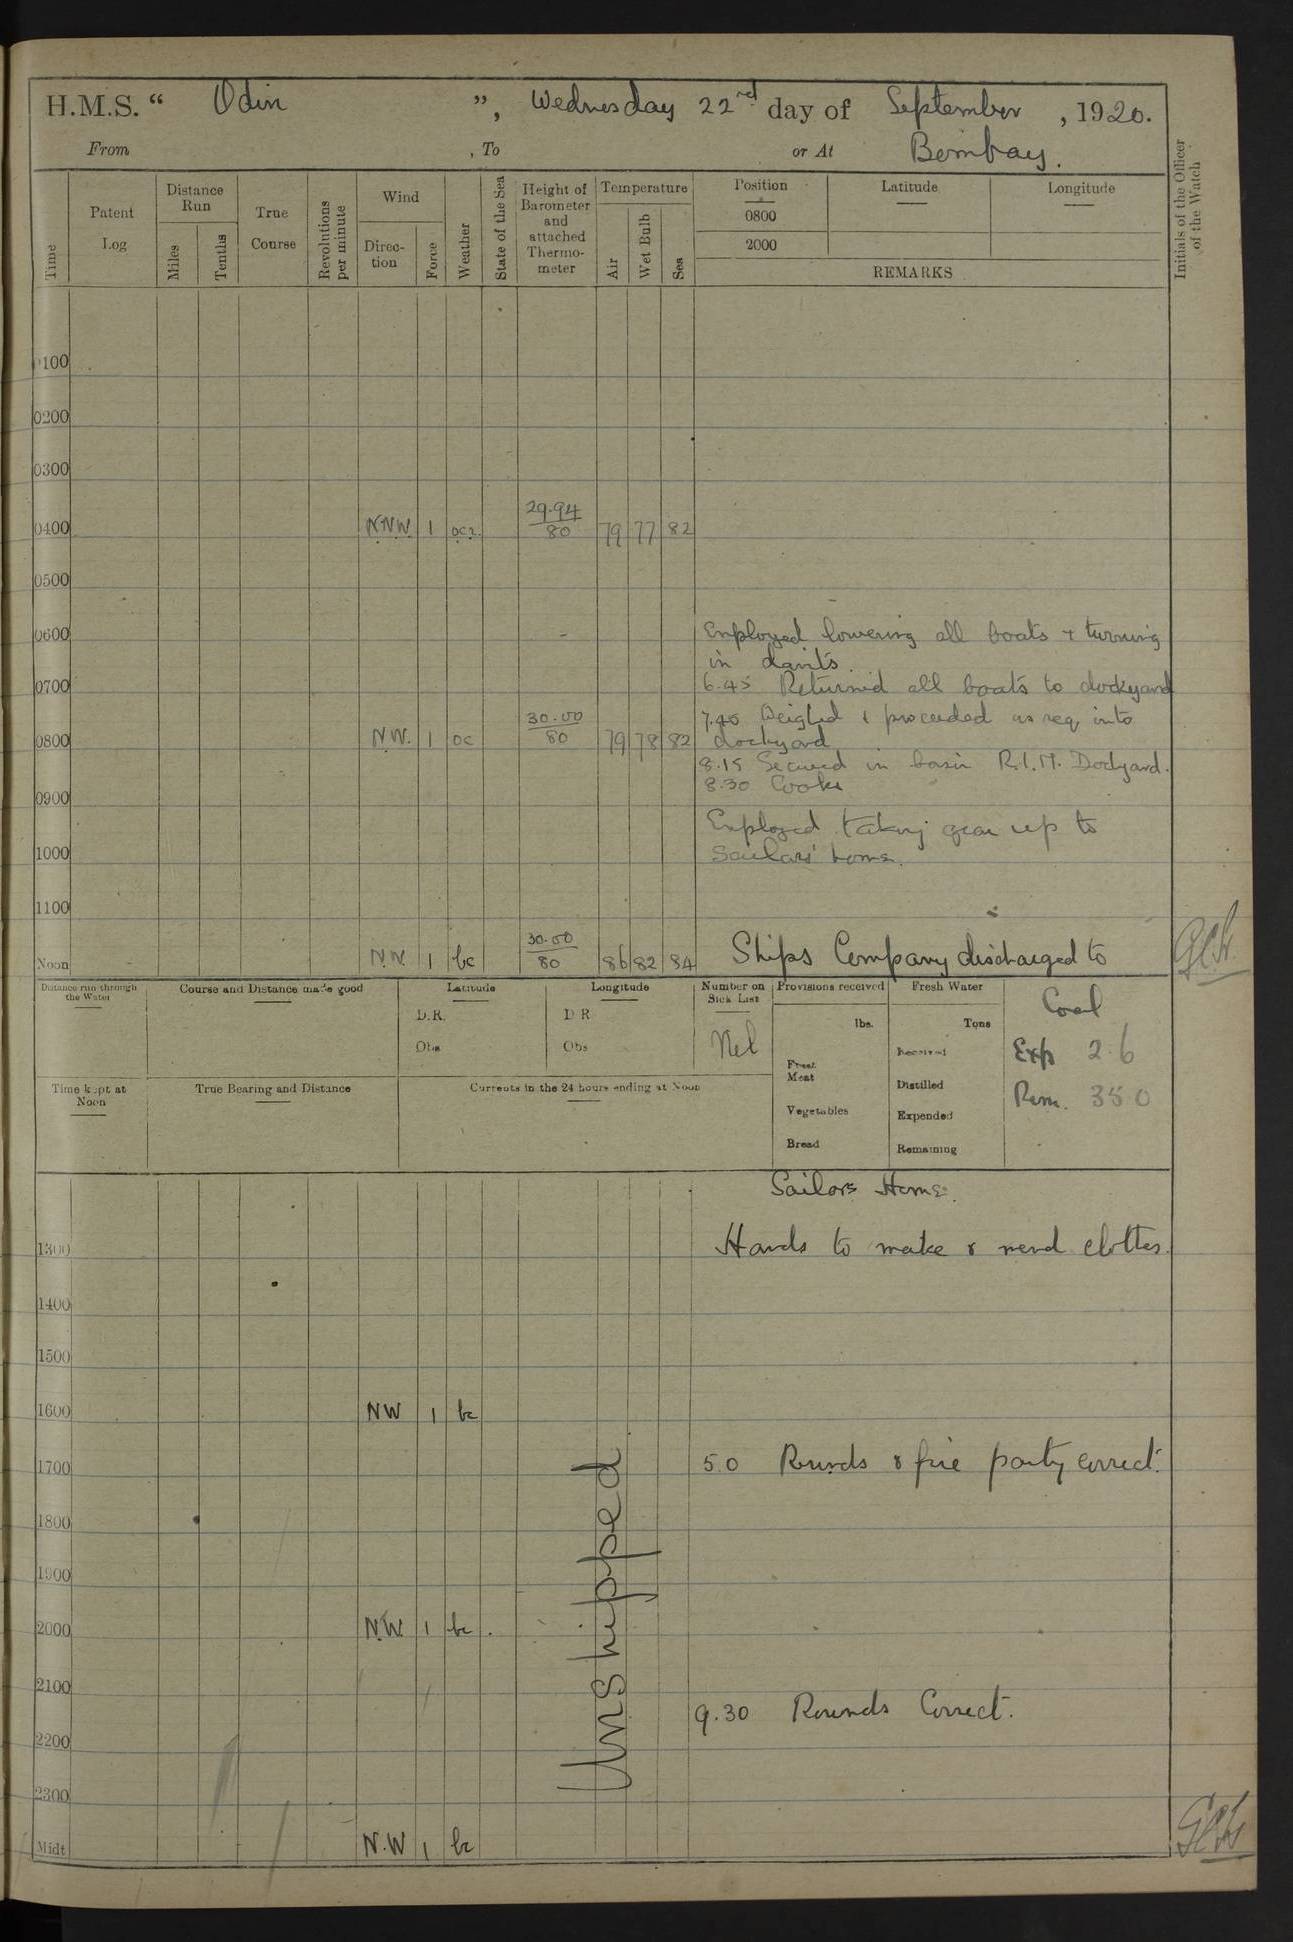 H.M.S. " Odin ", Wednesday 22nd day of September, 1920.
From , To or At Bombay.
Time
Patent Log
Distance Run
Miles
Tenths
True Course
Revolutions per minute
Wind
Direction
Force
Weather
State of the Sea
Height of Barometer and attached Thermometer
Temperature
Air
Wet Bulb
Sea
Position
0800
2000
Latitude
Longitude
REMARKS
Initials of the Officer of the Watch
0100
0200
0300
0400 NNW 1 29.94/80 79 77 82
0500
0600 Employed lowering all boats & turning
in davits.
0700 6.45 Returned all boats to dockyard
7.40 Weighed & proceeded as req into
0800 NW. 1 oc 30.00/80 79 78 82 dockyard
8.15 Secured in basin R.I.M. Dockyard.
8.30 Cooks
0900
Employed taking gear up to
1000 Sailors' home.
1100
Noon NW. 1 bc 30.00/80 86 82 84 Ships Company discharged to
Distance run through the Water
Course and Distance made good
Latitude
D.R.
Obs
Longitude
D R
Obs
Number on Sick List
Nil
Provisions received
lbs.
Fresh Meat
Vegetables
Bread
Fresh Water
Tons
Received
Distilled
Expended
Remaining
Coal
Exp 2.6
Rem. 350
Time kept at Noon
True Bearing and Distance
Currents in the 24 hours ending at Noon
Sailors Home.
1300 Hands to make & mend clothes.
1400
1500
1600 NW 1 bc
1700 5.0 Rounds & fire party correct.
1800
1900
2000 N.W. 1 bc
2100
9.30 Rounds Correct.
2200
2300
Midt N.W 1 bc
Unshipped